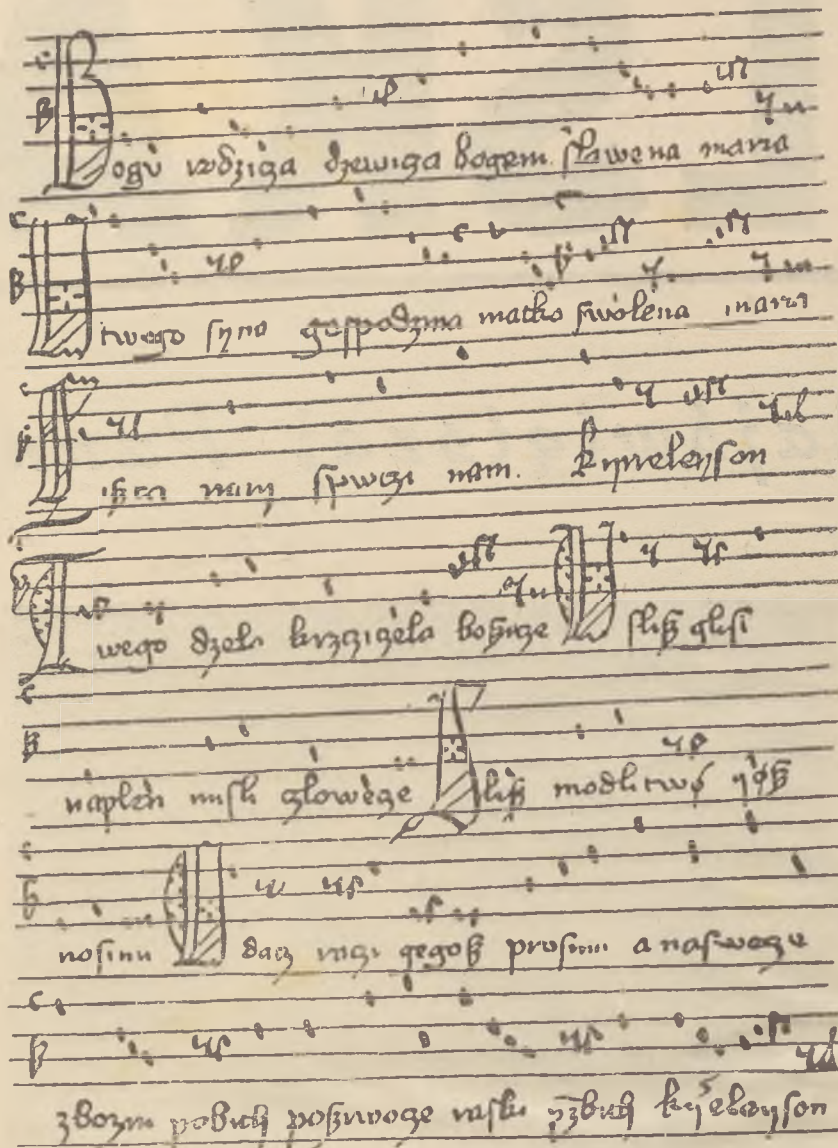 Bogu rodzicza dzewicza bogem slawena maria
U twego syna gospodzina matko swolena maria
Siszczi nam spwczi nam. kyrieleyson
Twego dzela krzcziczela bozicze Uslisz glosi
naplen misli czlowecze Slisz modlitwø yøsz
nosimi Oddacz raczi gegosz prosimi a naswecze
zbozni pobith posziwocze raski przebith kyrieleyson